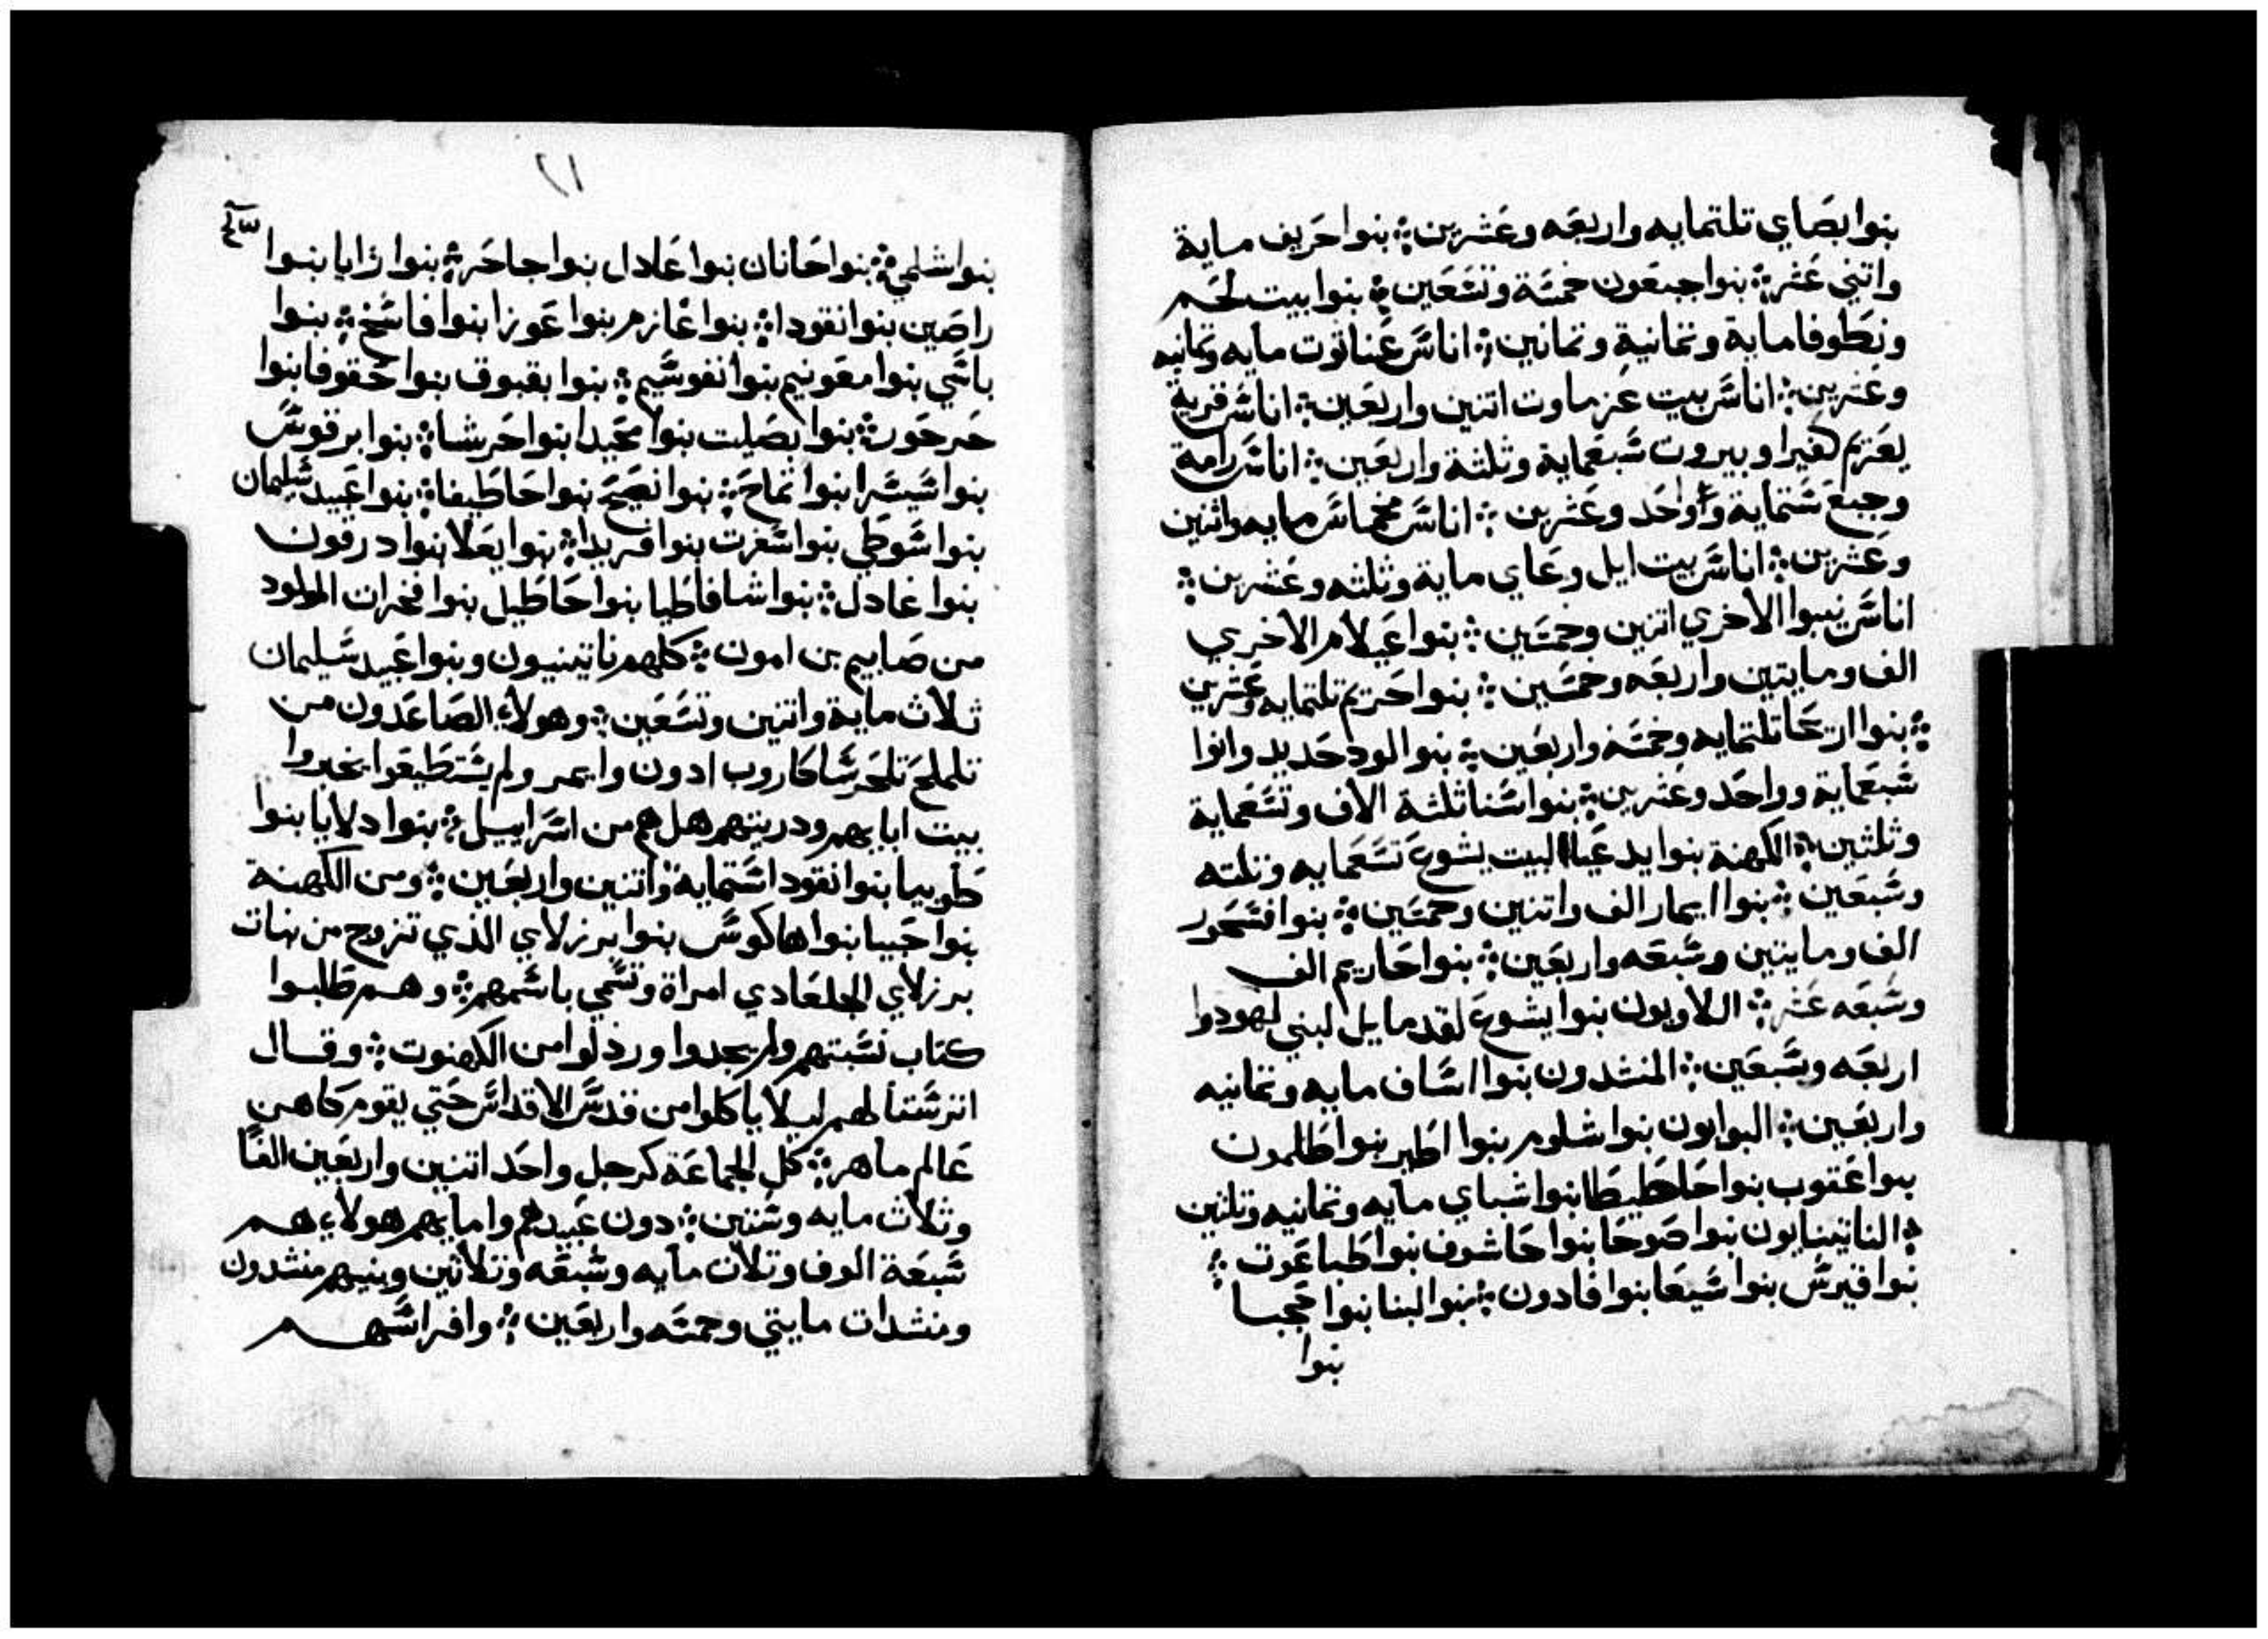 بنوا بصاي تلتمايه واربعه وعشرين ܀ بنوا حريف ماية
واتني عشر ܀ بنوا جبعون خمسة وتسعين ܀ بنوا بيت لحم
ونطوفا ماية وتمانية وتمانين ܀ اناس عناتوت مايه وتمانيه
وعشرين ܀ اناس بيت عزماوت اتنين واربعين ܀ اناس قرية
يعريم كفيرا وبيروت سبعماية وثلثة واربعين ܀ اناس رامة
وجبع ستماية وواحد وعشرين ܀ اناس مخماس مايه واثنين
وعشرين ܀ اناس بيت ايل وعاي ماية وثلثه وعشرين ܀
اناس نيبوا الاخري اتنين وخمسين ܀ بنوا عيلام الاخري
الف ومايتين واربعه وخمسين ܀ بنوا حريم تلتمايه وعشرين
܀ بنوا اريحا تلتمايه وخمسه واربعين ܀ بنوا لود حديد وانوا
سبعماية وواحد وعشرين ܀ بنوا سنا ثلثة الاف وتسعماية
وثلثين ܀ الكهنة بنوا يدعيا البيت يشوع تسعمايه وتلته
وسبعين ܀ بنوا ايمار الف واتنين وخمسين ܀ بنوا فسحور
الف ومايتين وسبعه واربعين ܀ بنوا حاريم الف
وسبعه عشر ܀ اللاويون بنوا يشوع لقدمايل لبني لهودوا
اربعه وسبعين ܀ المنشدون بنوا اساف مايه وتمانيه
واربعين ܀ البوابون بنوا شلوم بنوا اطير بنوا طلمون
بنوا عقوب بنوا حاطيطا بنوا شباي مايه وتمانيه وتلتين
܀ الناتينايون بنوا صوحا بنوا حاشوف بنوا طباعوت ܀
بنوا قيرس بنوا سيعا بنوا فادون ܀ بنوا لبنا بنوا حجبا
بنوا
٢١
بنوا شلمي ܀ بنوا حانان بنوا عادل بنوا جاحر ܀ بنوا رايا بنوا
راصين بنوا نقودا ܀ بنوا غازم بنوا عوزا بنوا فاسخ ܀ بنوا
باسي بنوا معونيم بنوا نفوسيم ܀ بنوا بقبوق بنوا حقوفا بنوا
حرحور ܀ بنوا بصليت بنوا محيدا بنوا حرشا ܀ بنوا برقوس
بنوا سيسرا بنوا تماح ܀ بنوا نصيح بنوا حاطيفا ܀ بنوا عبيد سليمان
بنوا سوطي بنوا سفرت بنوا فريدا ܀ بنوا يعلا بنوا درقون
بنوا غادل ܀ بنوا شافاطيا بنوا حاطيل بنوا فخران المولود
من صابيم بن امون ܀ كلهم ناتينيون وبنوا عبيد سليمان
ثلاث ماية واتنين وتسعين ܀ وهولاء الصاعدون من
تلملح تلحرسا كاروب ادون وايمر ولم يستطيعوا يخبروا
بيت ابايهم ودريتهم هل هم من اسراييل ܀ بنوا دلايا بنوا
طوبيا بنوا نقودا ستماية واتنين واربعين ܀ ومن الكهنة
بنوا حبيا بنوا هاكوس بنوا برزلاي الذي تزوج من بنات
برزلاي الجلعادي امراة وتسمي باسمهم ܀ وهم طلبوا
كتاب نسبتهم ولم يجدوا ورذلوا من الكهنوت ܀ وقال
اترستا لهم ليلا ياكلوا من قدس الاقداس حتي يقوم كاهن
عالم ماهر ܀ كل الجماعة كرجل واحد اتنين واربعين الفا
وثلاث مايه وستين ܀ دون عبيدهم وامايهم هولاء هم
سبعة الوف وتلات مايه وسبعه وتلاتين وبنيهم منشدون
ومنشدات مايتي وخمسه واربعين ܀ وافراسهم